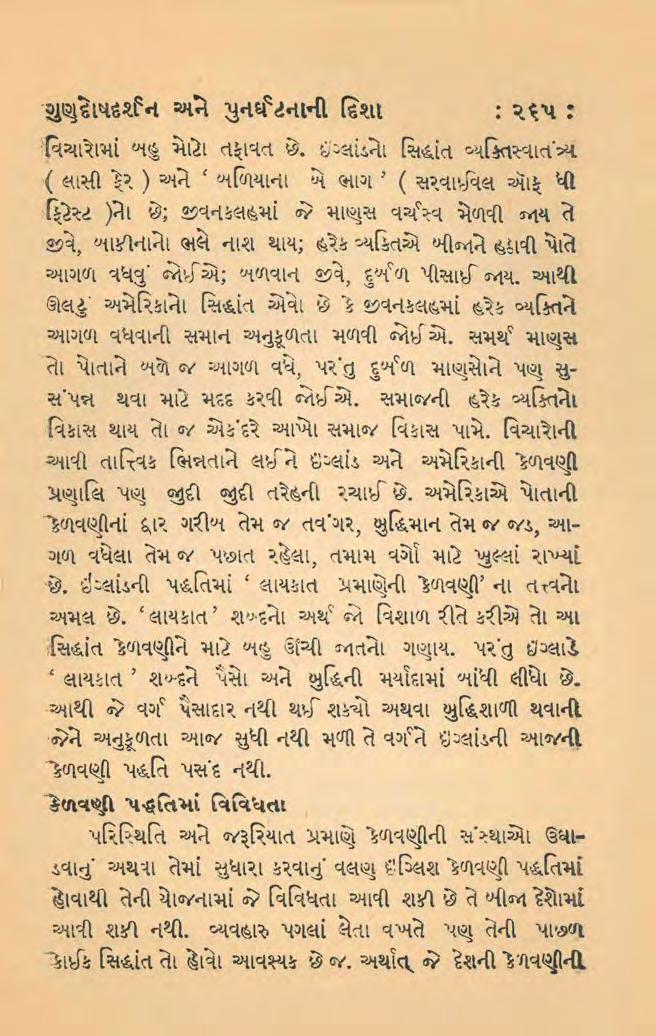 ગુણદોષદર્શન અને પુનર્ઘટનાની દિશા : ૨૬૫ :
વિચારોમાં બહુ મોટો તફાવત છે. ઇંગ્લાંડનો સિદ્ધાંત વ્યક્તિસ્વાતંત્ર્ય
( લાસી ફેર ) અને ‘ બળિયાના બે ભાગ ’ ( સરવાઈવલ ઑફ ધી
ફિટેસ્ટ )નો છે; જીવનકલહમાં જે માણસ વર્ચસ્વ મેળવી જાય તે
જીવે, બાકીનાનો ભલે નાશ થાય; હરેક વ્યકિતએ બીજાને હઠાવી પોતે
આગળ વધવું જોઈએ; બળવાન જીવે, દુર્બળ પીસાઈ જાય. આથી
ઊલટું અમેરિકાનો સિદ્ધાંત એવો છે કે જીવનકલહમાં હરેક વ્યક્તિને
આગળ વધવાની સમાન અનુકૂળતા મળવી જોઈએ. સમર્થ માણસ
તો પોતાને બળે જ આગળ વધે, પરંતુ દુર્બળ માણસોને પણ સુ-
સંપન્ન થવા માટે મદદ કરવી જોઈએ. સમાજની હરેક વ્યક્તિનો
વિકાસ થાય તો જ એકંદરે આખો સમાજ વિકાસ પામે. વિચારોની
આવી તાત્ત્વિક ભિન્નતાને લઈને ઇંગ્લાંડ અને અમેરિકાની કેળવણી
પ્રણાલિ પણ જુદી જુદી તરેહની રચાઈ છે. અમેરિકાએ પોતાની
કેળવણીનાં દ્વાર ગરીબ તેમ જ તવંગર, બુદ્ધિમાન તેમ જ જડ, આ-
ગળ વધેલા તેમ જ પછાત રહેલા, તમામ વર્ગો માટે ખુલ્લાં રાખ્યાં
છે. ઇંગ્લાંડની પદ્ધતિમાં ‘ લાયકાત પ્રમાણેની કેળવણી’ ના તત્ત્વનો
અમલ છે. ‘લાયકાત’ શબ્દનો અર્થ જો વિશાળ રીતે કરીએ તો આ
સિદ્ધાંત કેળવણીને માટે બહુ ઊંચી જાતનો ગણાય. પરંતુ ઇંગ્લાંડે
‘ લાયકાત ’ શબ્દને પૈસો અને બુદ્ધિની મર્યાદામાં બાંધી લીધો છે.
આથી જે વર્ગ પૈસાદાર નથી થઈ શક્યો અથવા બુદ્ધિશાળી થવાની
જેને અનુકૂળતા આજ સુધી નથી મળી તે વર્ગને ઇંગ્લાંડની આજની
કેળવણી પદ્ધતિ પસંદ નથી.
કેળવણી પદ્ધતિમાં વિવિધતા
પરિસ્થિતિ અને જરૂરિયાત પ્રમાણે કેળવણીની સંસ્થાઓ ઉઘા-
ડવાનું અથવા તેમાં સુધારા કરવાનું વલણ ઇંગ્લિશ કેળવણી પદ્ધતિમાં
હોવાથી તેની યોજનામાં જે વિવિધતા આવી શકી છે તે બીજા દેશોમાં
આવી શકી નથી. વ્યવહારુ પગલાં લેતા વખતે પણ તેની પાછળ
કાંઈક સિદ્ધાંત તો હોવો આવશ્યક છે જ. અર્થાત્ જે દેશની કેળવણીની